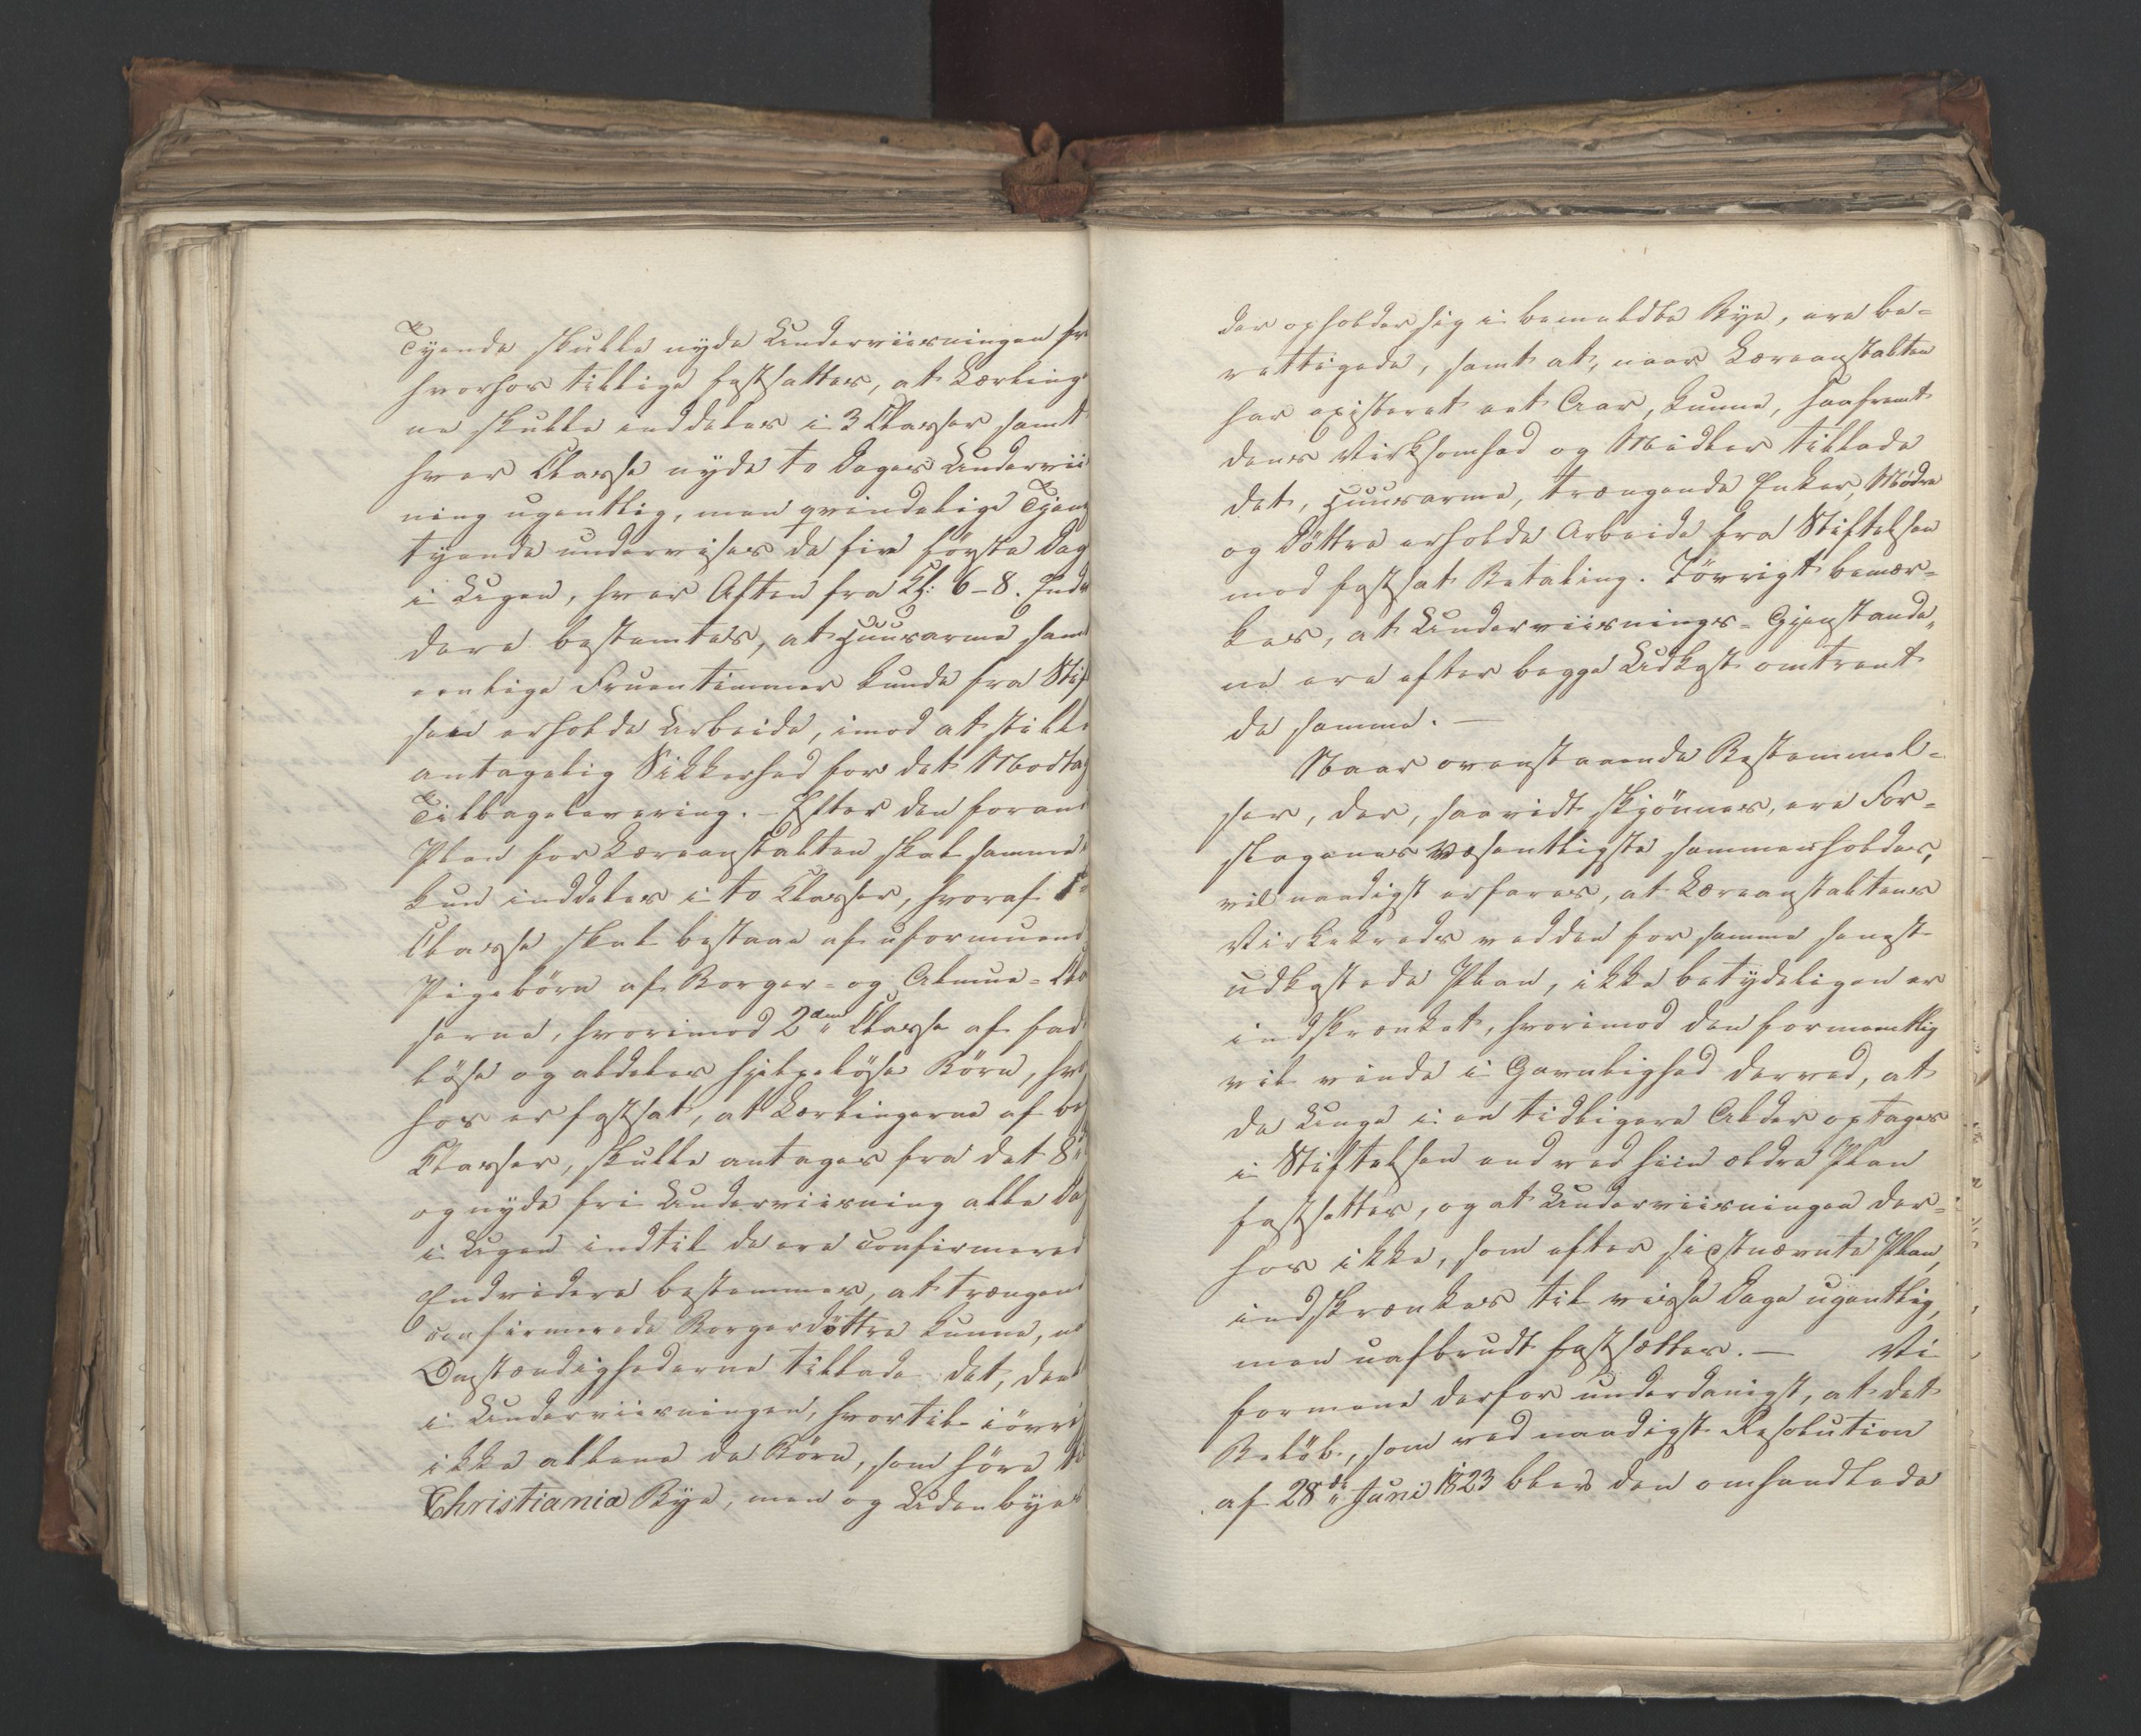 Tyende skulle nyde Underviisningen fr
hvorhos tillige fastsattes, at Lærling
ne skulle inddeles i 3 Classer samt
hver Classe nyde to Dages Undervii
ning ugentlig, men qvindelige Tjene
tyende undervises de fire första Dag
i Ugen, hver Aften fra Kl: 6-8. End
dere bestemtes, at huusarme sam
eenlige Fruentimmer kunde fra Stif
sen erholde Arbeide, imod at stille
antagelig Sikkerhed for det Modtag
Tilbagelevering. - Efter den foran
Plan for Læreanstalten skal samme
kun inddeles i to Classer, hvoraf 1ste
Classe skal bestaae af uformuend
Pigebörn af Borger- og Almue-Cla
serne, hvorimod 2den Classe af fad
löse og aldeles hjelpelöse Börn, hvo
hos er fastsat, at Lærlingerne af be
Classer, skulle antages fra det 8
og nyde fri Underviisning alle Dag
i Ugen indtil de ere confirmered
Endvidere bestemmes, at trængend
confirmerede Borgerdöttre kunne, n
Omstændighederne tillade det, deel
i Underviisningen, hvortil iövri
ikke allene de Börn, som höre ti
Christiania Bye, men og Udenbyes
der opholder sig i bemeldte Bye, ere be-
rettigede, samt at, naar Læreanstalten
har existeret eet Aar, kunne, saafremt
dens Virksomhed og Midler tillade
det, huusarme, trængende Enker, Mødre
og Döttre erholde Arbeide fra Stiftelsen
mod fastsat Betaling. Iövrigt bemær-
kes, at Underviisnings-Gjenstande-
ne ere efter begge Udkast omtrent
de samme. -
Naar ovenstaaende Bestemmel-
ser, der, saavidt skjönnes, ere For-
slagenes væsentligste sammenholdes,
vil naadigst erfares, at Læreanstaltens
Virkekreds ved den for samme senest
udkastede Plan, ikke betydeligen er
indskrænket, hvorimod den formeentlig
vil vinde i Gavnlighed derved, at
de Unge i en tidligere Alder optages
i Stiftelsen end ved hiin ældre Plan
fastsattes, og at Underviisningen der-
hos ikke, som efter sidstnævnte Plan,
indskrænkes til visse Dage ugentlig,
men uafbrudt fastsættes. - Vi
formene derfor underdanigst, at det
Belöb, som ved naadigst Resolution
af 28de Juni 1823 blev den omhandlede